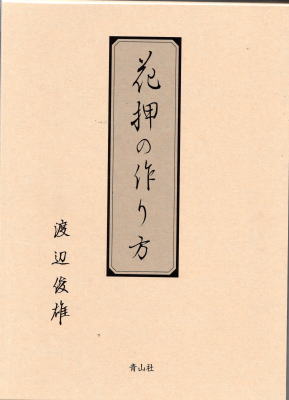 花押の作り方
渡辺俊雄
青山社